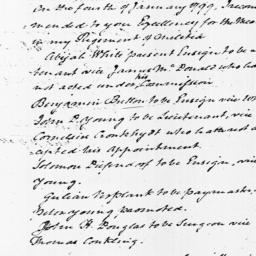 on the fourth of January 1799, I recom
mended to your Excellency for the
in my Regiment of
Abijah White present Ensign to be
tenant vice James Mc Donald who ha
not acted under his Commission
Benjamin Button to be Ensign vice
John D. Young to be Lieutenant, vice
Cornelius who hath not a
cepted his Appointment
Solomon to be Ensign, vice
Young.
Gulian Verplank to be paymaster
Young promoted.
John H. Douglas to be Surgeon vice
Thomas Conkling.